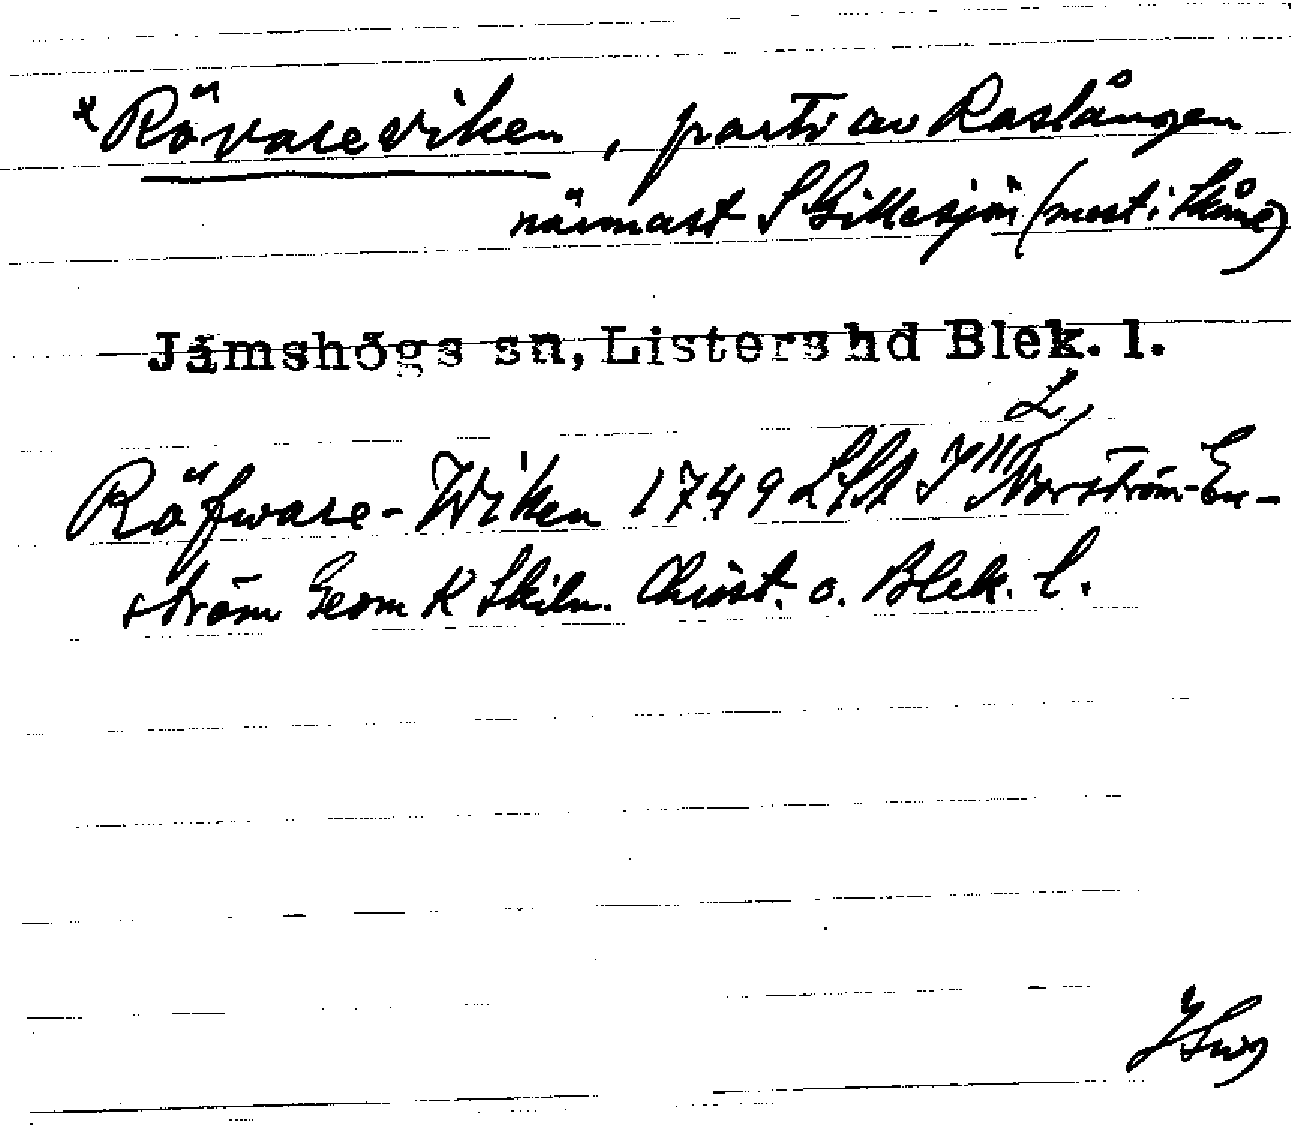 * Rövareviken, parti av Raslången
närmast S Gillesjön (mest i Skåne)
Jämshögs sn, Listers hd Blek. l.
L,
Röfware-Wiken 1749 LSA Norström-En-
ström Geom K Skiln. Christ. o. Blek. l.